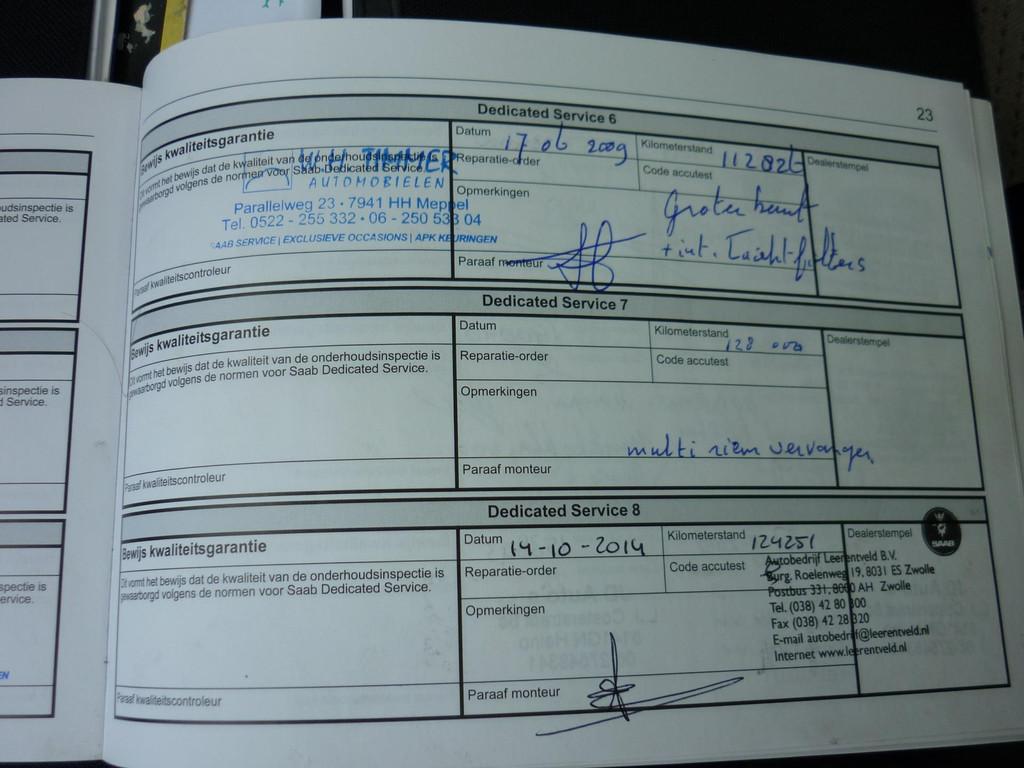 23
Dedicated Service 6
Bewijs kwaliteitsgarantie
Dit vormt het bewijs dat de kwaliteit van de onderhoudsinspectie is
gewaarborgd volgens de normen voor Saab Dedicated Service.
AUTOMOBIELEN
Parallelweg 23 · 7941 HH Meppel
Tel. 0522 - 255 332 · 06 - 250 533 04
SAAB SERVICE | EXCLUSIEVE OCCASIONS | APK KEURINGEN
Paraaf kwaliteitscontroleur
Datum 17 06 2009
Kilometerstand
Dealerstempel
Reparatie-order
Code accutest
Opmerkingen
Grote beurt
+ int.
Paraaf monteur
Dedicated Service 7
Bewijs kwaliteitsgarantie
Dit vormt het bewijs dat de kwaliteit van de onderhoudsinspectie is
gewaarborgd volgens de normen voor Saab Dedicated Service.
Paraaf kwaliteitscontroleur
Datum
Kilometerstand 128 000
Dealerstempel
Reparatie-order
Code accutest
Opmerkingen
multi riem vervangen
Paraaf monteur
Dedicated Service 8
Bewijs kwaliteitsgarantie
Dit vormt het bewijs dat de kwaliteit van de onderhoudsinspectie is
gewaarborgd volgens de normen voor Saab Dedicated Service.
Paraaf kwaliteitscontroleur
Datum 14-10-2014
Kilometerstand 124251
Dealerstempel
SAAB
Reparatie-order
Code accutest
Autobedrijf Leerentveld B.V.
Burg. Roelenweg 19, 8031 ES Zwolle
Postbus 331, 8000 AH Zwolle
Tel. (038) 42 80 800
Fax (038) 42 28 320
E-mail autobedrijf@leerentveld.nl
Internet www.leerentveld.nl
Opmerkingen
Paraaf monteur